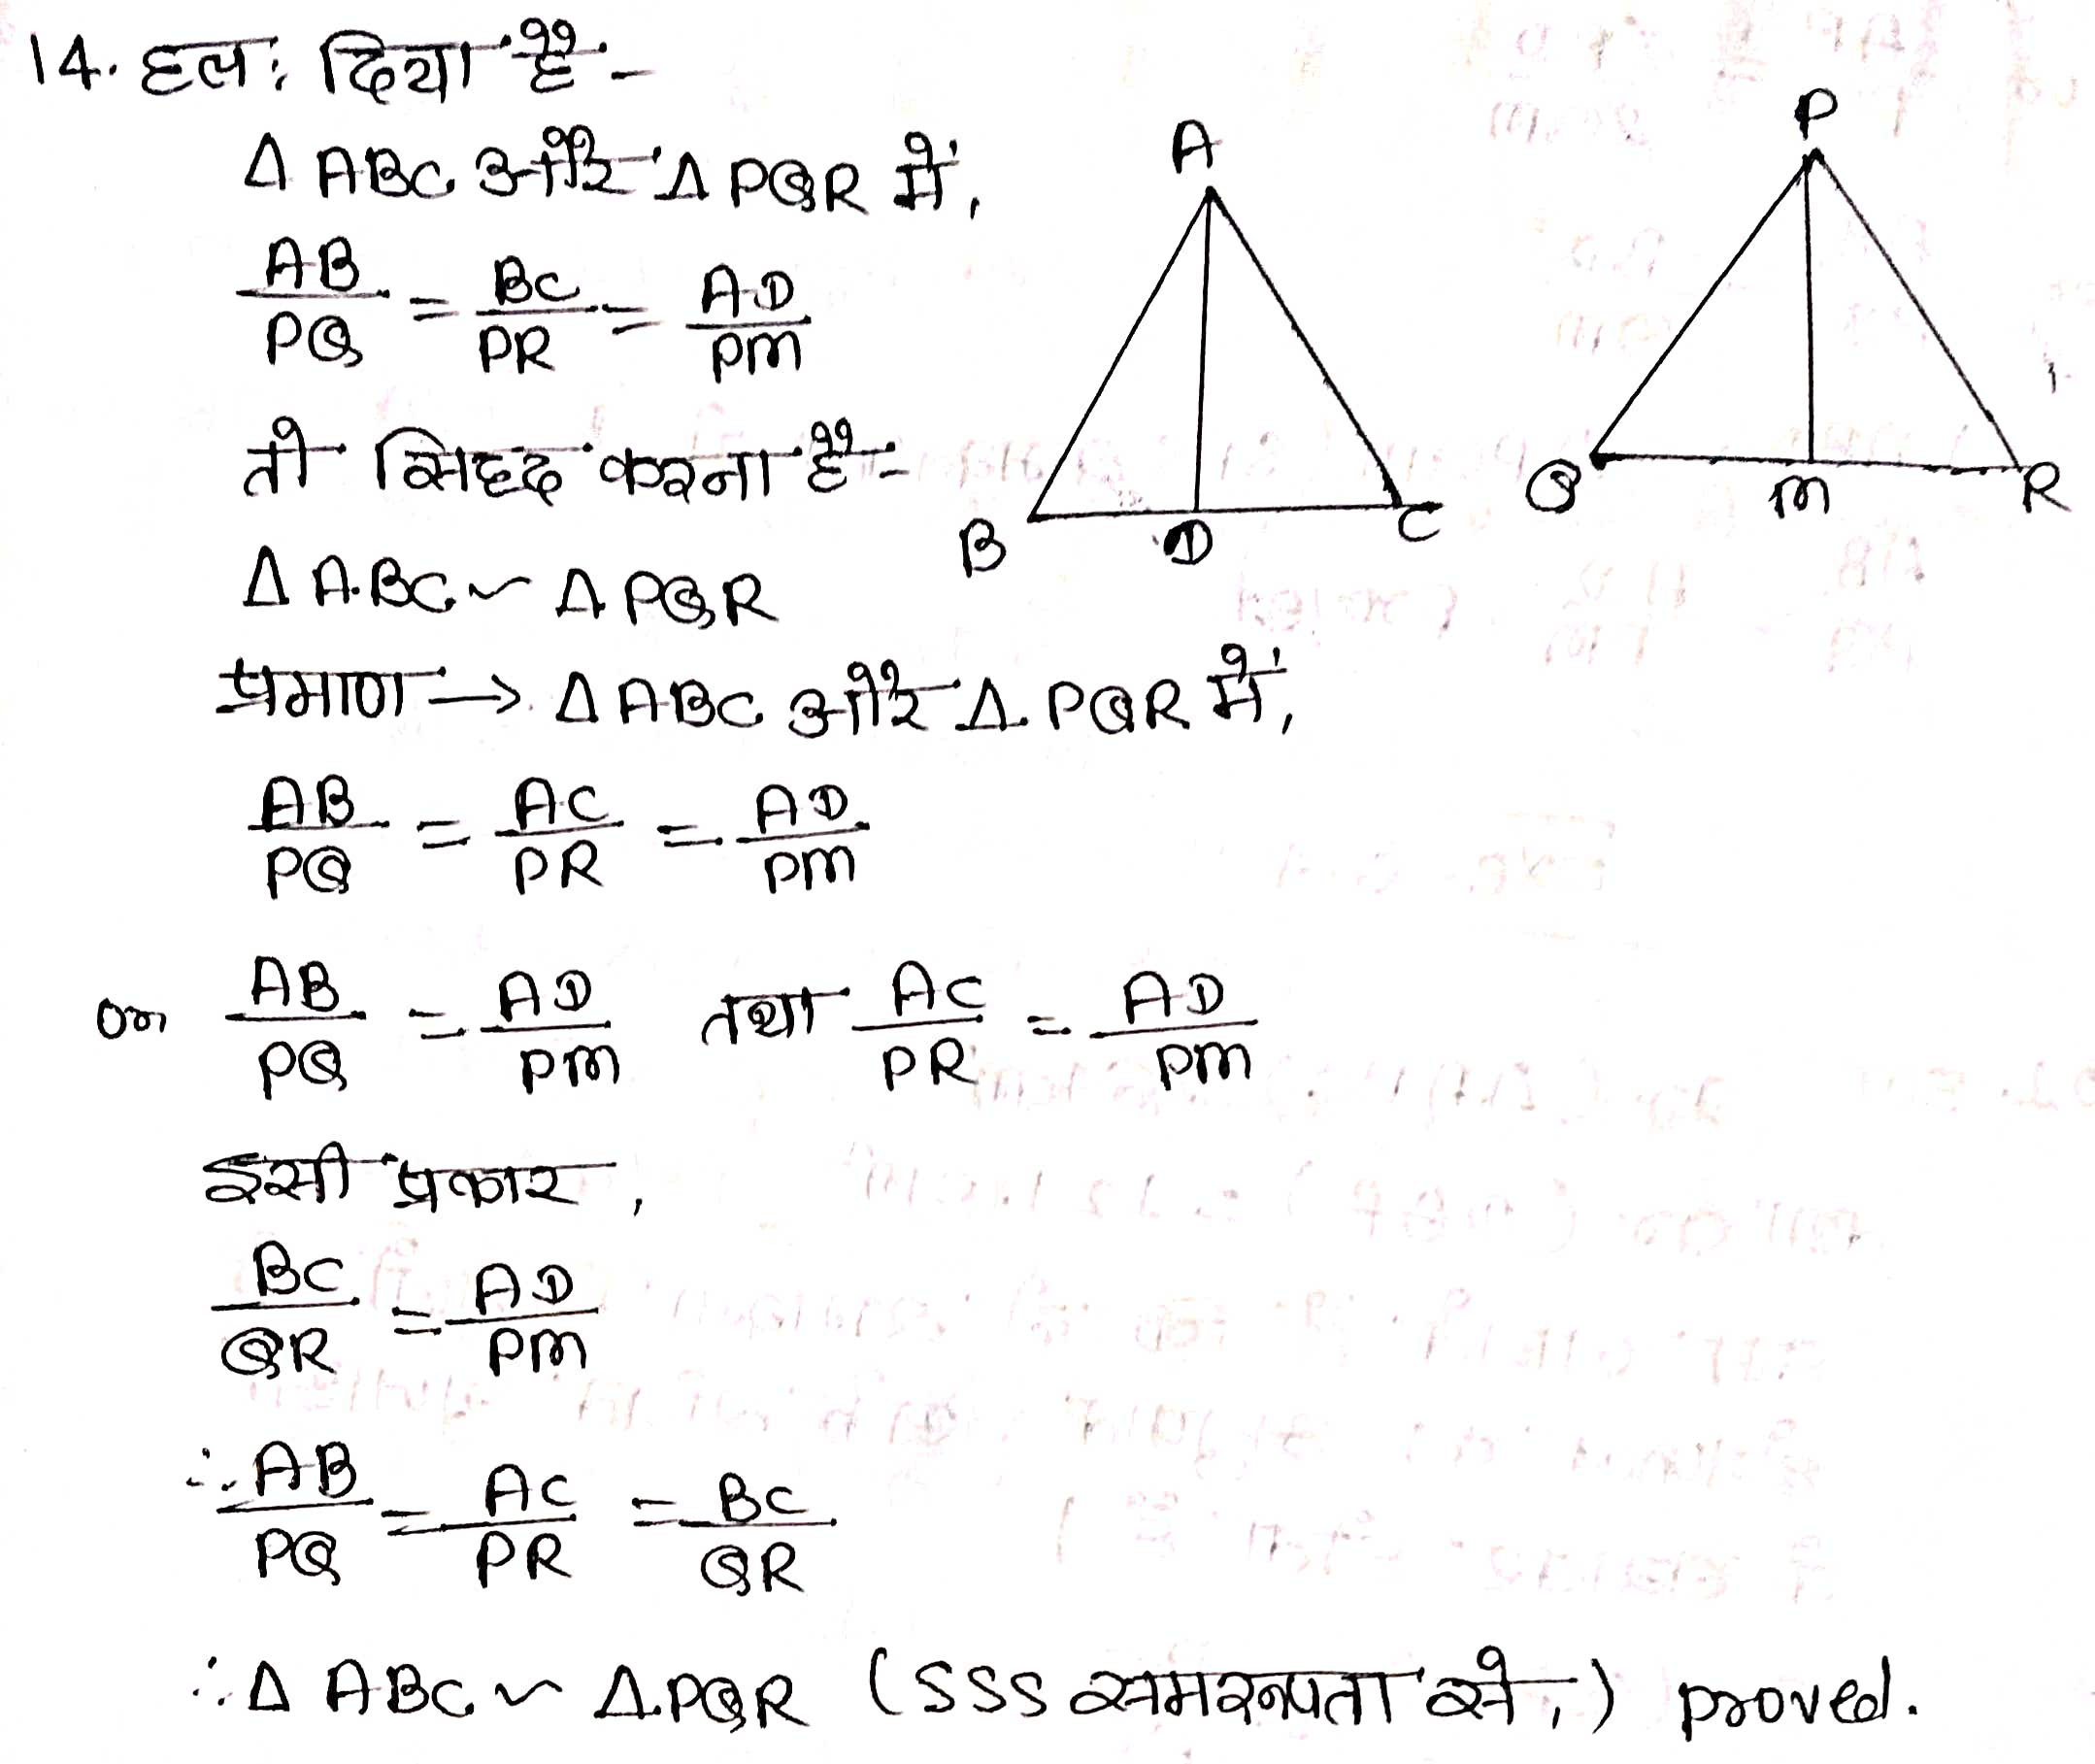 14. हल: दिया है -
Δ ABC और Δ PQR में,
AB/PQ = BC/PR = AD/PM
तो सिद्द करना है -
Δ ABC ~ Δ PQR
प्रमाण → Δ ABC और Δ PQR में,
AB/PQ = AC/PR = AD/PM
or AB/PQ = AD/PM तथा AC/PR = AD/PM
इसी प्रकार,
BC/QR = AD/PM
∴ AB/PQ = AC/PR = BC/QR
∴ Δ ABC ~ Δ PQR (SSS समरूपता से,) proved.
A
B
D
C
P
Q
M
R